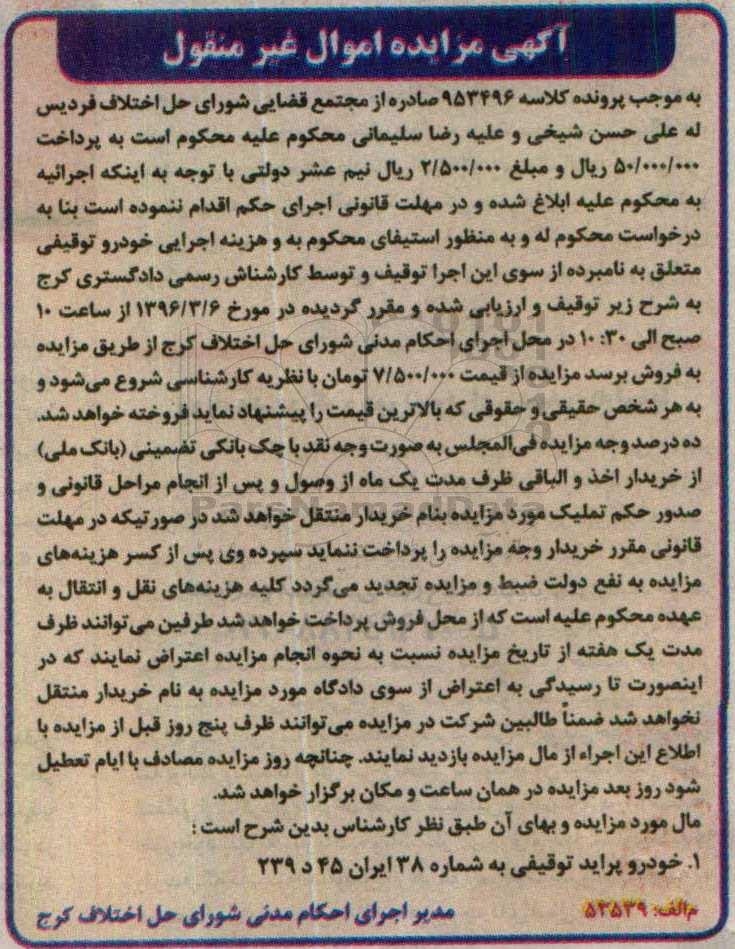 آگهی مزایده اموال غیر منقول
به موجب پرونده کلاسه ۹۵۳۴۹۶ صادره از مجتمع قضایی شورای حل اختلاف فردیس
له علی حسن شیخی و علیه رضا سلیمانی محکوم علیه محکوم است به پرداخت
۵۰/۰۰۰/۰۰۰ ریال و مبلغ ۲/۵۰۰/۰۰۰ ریال نیم عشر دولتی با توجه به اینکه اجرائیه
به محکوم علیه ابلاغ شده و در مهلت قانونی اجرای حکم اقدام ننموده است بنا به
درخواست محکوم له و به منظور استیفای محکوم به و هزینه اجرایی خودرو توقیفی
متعلق به نامبرده از سوی این اجرا توقیف و توسط کارشناش رسمی دادگستری کرج
به شرح زیر توقیف و ارزیابی شده و مقرر گردیده در مورخ ۱۳۹۶/۳/۶ از ساعت ۱۰
صبح الی ۱۰:۳۰ در محل اجرای احکام مدنی شورای حل اختلاف کرج از طریق مزایده
به فروش برسد مزایده از قیمت ۷/۵۰۰/۰۰۰ تومان با نظریه کارشناسی شروع می‌شود و
به هر شخص حقیقی و حقوقی که بالاترین قیمت را پیشنهاد نماید فروخته خواهد شد.
ده درصد وجه مزایده فی‌المجلس به صورت وجه نقد با چک بانکی تضمینی (بانک ملی)
از خریدار اخذ و الباقی ظرف مدت یک ماه از وصول و پس از انجام مراحل قانونی و
صدور حکم تملیک مورد مزایده بنام خریدار منتقل خواهد شد در صورتیکه در مهلت
قانونی مقرر خریدار وجه مزایده را پرداخت ننماید سپرده وی پس از کسر هزینه‌های
مزایده به نفع دولت ضبط و مزایده تجدید می‌گردد کلیه هزینه‌های نقل و انتقال به
عهده محکوم علیه است که از محل فروش پرداخت خواهد شد طرفین می‌توانند ظرف
مدت یک هفته از تاریخ مزایده نسبت به نحوه انجام مزایده اعتراض نمایند که در
اینصورت تا رسیدگی به اعتراض از سوی دادگاه مورد مزایده به نام خریدار منتقل
نخواهد شد ضمناً طالبین شرکت در مزایده می‌توانند ظرف پنج روز قبل از مزایده با
اطلاع این اجراء از مال مزایده بازدید نمایند. چنانچه روز مزایده مصادف با ایام تعطیل
شود روز بعد مزایده در همان ساعت و مکان برگزار خواهد شد.
مال مورد مزایده و بهای آن طبق نظر کارشناس بدین شرح است:
۱. خودرو پراید توقیفی به شماره ۳۸ ایران ۴۵ د ۲۳۹
م‌الف: ۵۳۵۳۹ مدیر اجرای احکام مدنی شورای حل اختلاف کرج